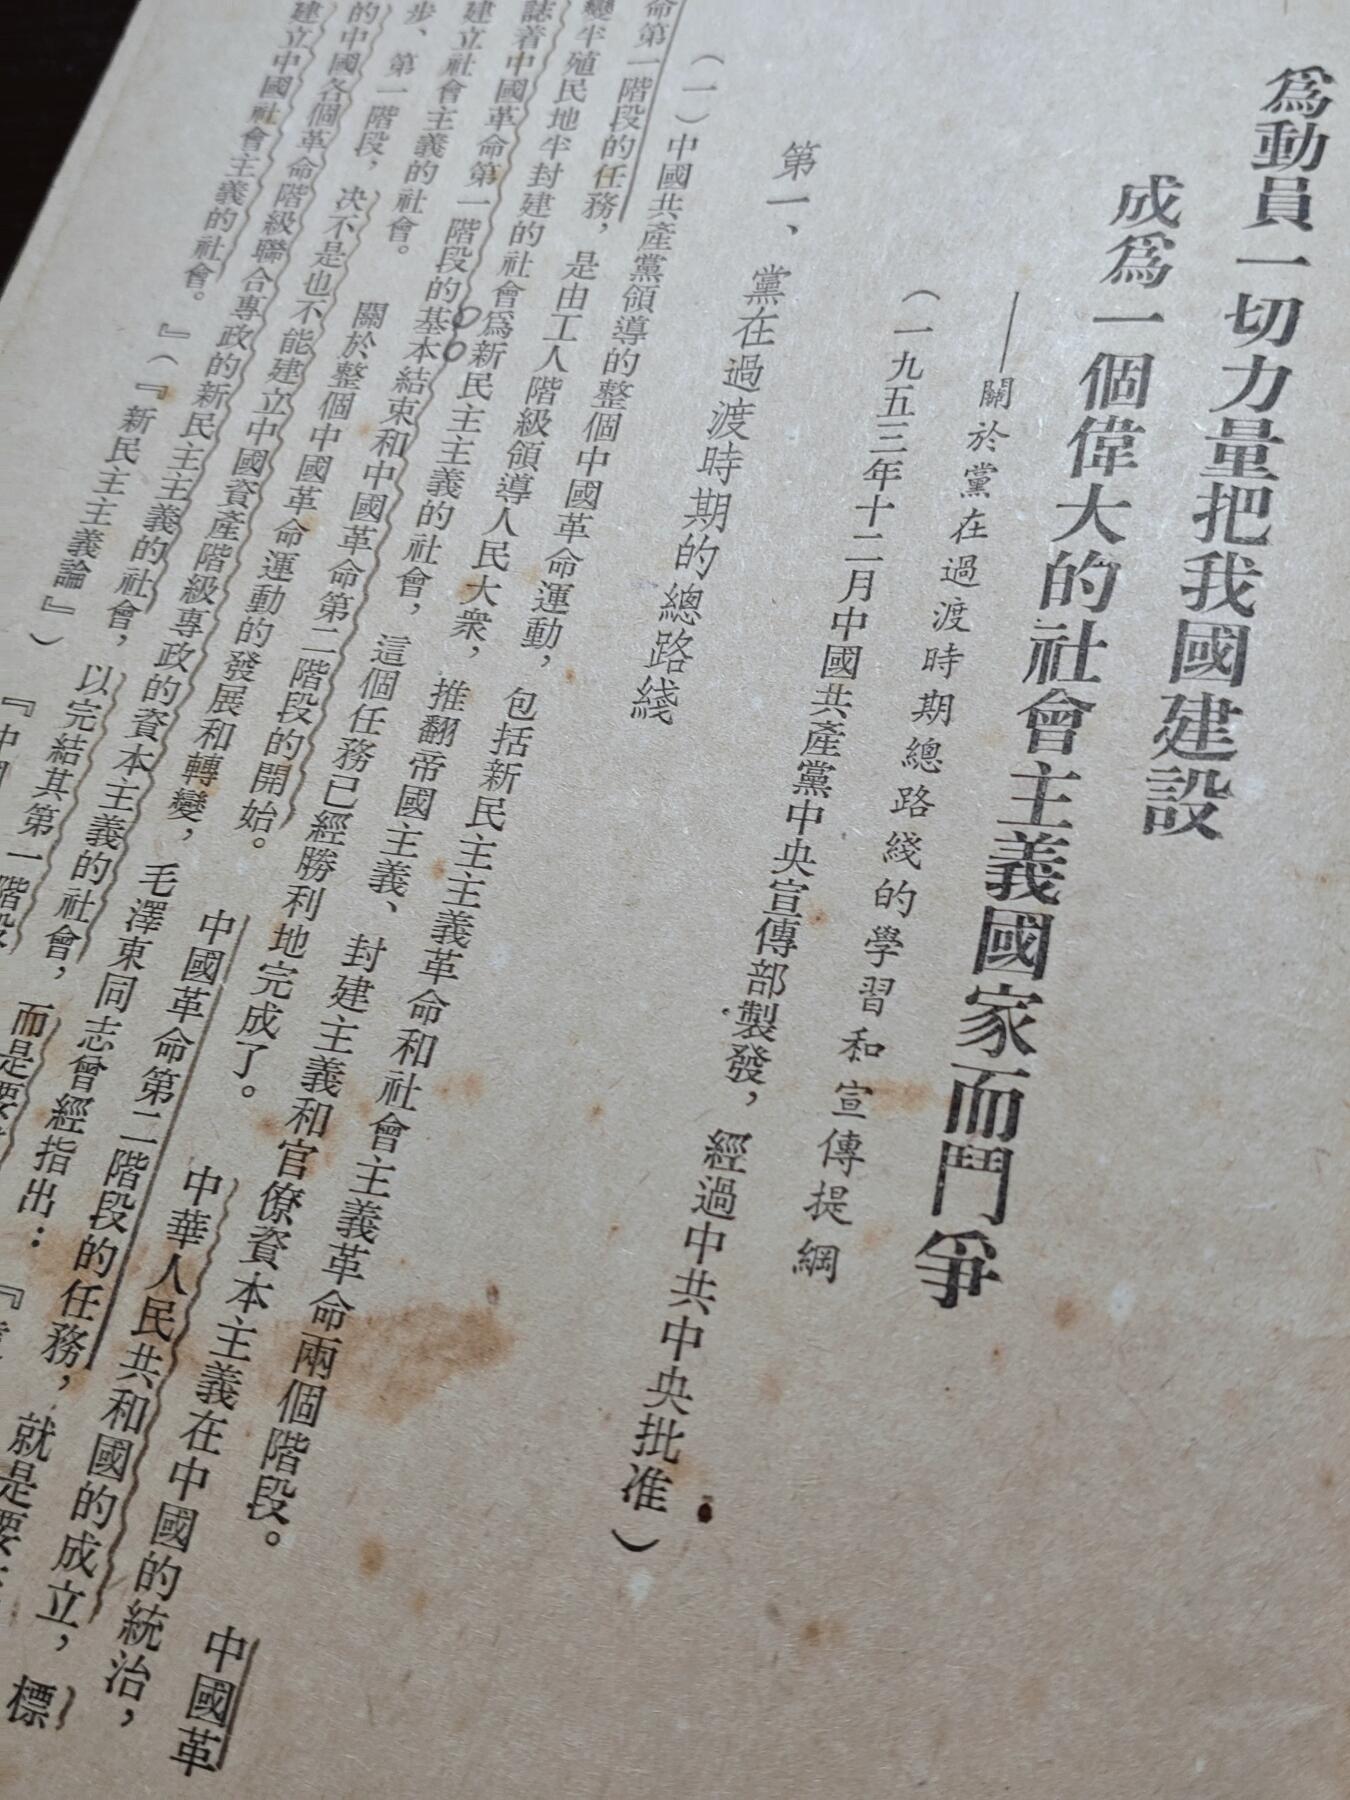 爲動員一切力量把我國建設
成爲一個偉大的社會主義國家而鬥爭
——關於黨在過渡時期總路綫的學習和宣傳提綱
（一九五三年十二月中國共產黨中央宣傳部製發，經過中共中央批准）
第一、黨在過渡時期的總路綫
（一）中國共產黨領導的整個中國革命運動，包括新民主主義革命和社會主義革命兩個階段。中國革
命第一階段的任務，是由工人階級領導人民大衆，推翻帝國主義、封建主義和官僚資本主義在中國的統治，
變半殖民地半封建的社會爲新民主主義的社會，這個任務已經勝利地完成了。中華人民共和國的成立，標
誌着中國革命第一階段的基本結束和中國革命第二階段的開始。中國革命第二階段的任務，就是要
建立社會主義的社會。關於整個中國革命運動的發展和轉變，毛澤東同志曾經指出：『
步、第一階段，決不是也不能建立中國資產階級專政的資本主義的社會，而是要
的中國各個革命階級聯合專政的新民主主義的社會，以完結其第一階段
建立中國社會主義的社會。』（『新民主主義論』）『中